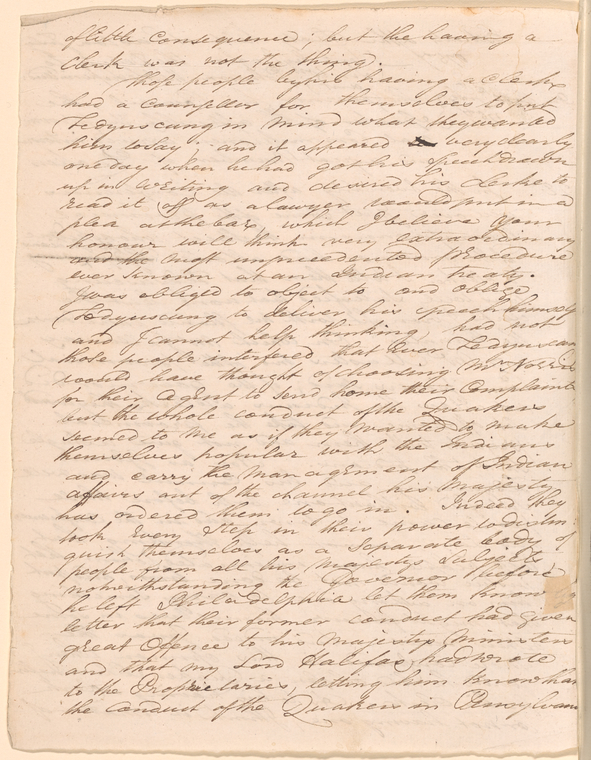 of little Consequence; but the having a
Clerk was not the thing.
Those people by his having a Clerk
had a Counsellor for themselves to put
Tedyuscung in mind what they wanted
him to say; and it appeared very clearly
one day when he had got his speech drawn
up in Writing and desired his Clerke to
read it off as a lawyer would put in a
plea at the bar, which I believe your
honour will think very extraordinary
and the most unprecedented procedure
ever known at an Indian treaty.
I was obliged to object to and oblige
Tedyuscung to deliver his speech himself
and I cannot help thinking, had not
those people interfered that ever Tedyuscung
would have thought of choosing Mr Norris
for their Agent to send home their Complaints
but the whole conduct of the Quakers
seemed to me as if they wanted to make
themselves popular with the Indians
and carry the management of Indian
affairs out of the channel his Majesty
has ordered them to go in. Indeed they
took Every Step in their power to distin:
guish themselves as a Separate body of
people from all his majestys Subjects
notwithstanding the Governor before
he left Philadelphia let them know
letter that their former conduct had given
great Offence to his majestys Ministers
and that my Lord Halifax had wrote
to the Proprietaries, letting him know that
the Conduct of the Quakers in Pensylvani